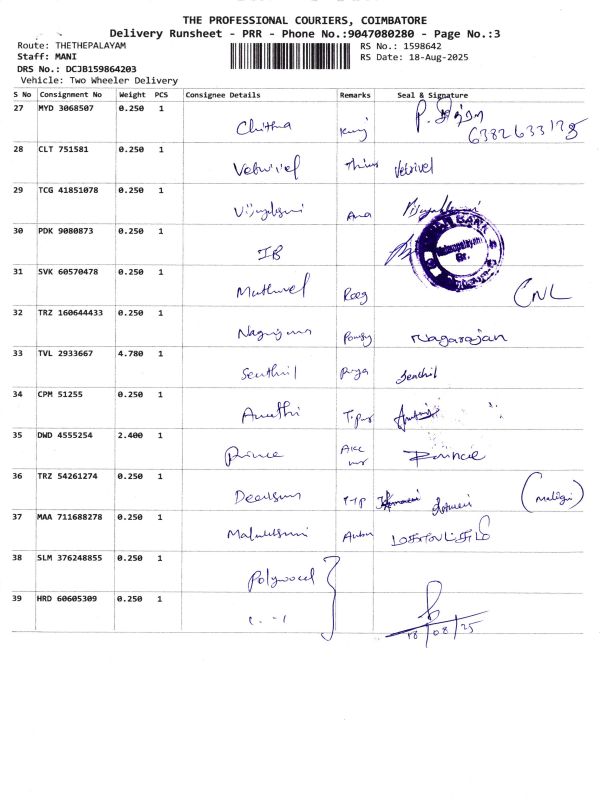 THE PROFESSIONAL COURIERS, COIMBATORE
Delivery Runsheet - PRR - Phone No.:9047080280 - Page No.:3
Route: THETHEPALAYAM
Staff: MANI
DRS No.: DCJB159864203
Vehicle: Two Wheeler Delivery
RS No.: 1598642
RS Date: 18-Aug-2025
S No Consignment No Weight PCS Consignee Details Remarks Seal & Signature
27 MYD 3068507 0.250 1 Chithra
6382633178
28 CLT 751581 0.250 1 Vetrivel Vetrivel
29 TCG 41851078 0.250 1
30 PDK 9080873 0.250 1 IB
31 SVK 60570478 0.250 1 Muthuvel CNL
32 TRZ 160644433 0.250 1 Nagarajan
33 TVL 2933667 4.780 1 Senthil Priya Senthil
34 CPM 51255 0.250 1
35 DWD 4555254 2.400 1 Prince Prince
36 TRZ 54261274 0.250 1
37 MAA 711688278 0.250 1
38 SLM 376248855 0.250 1 Polywood
39 HRD 60605309 0.250 1 18/08/25